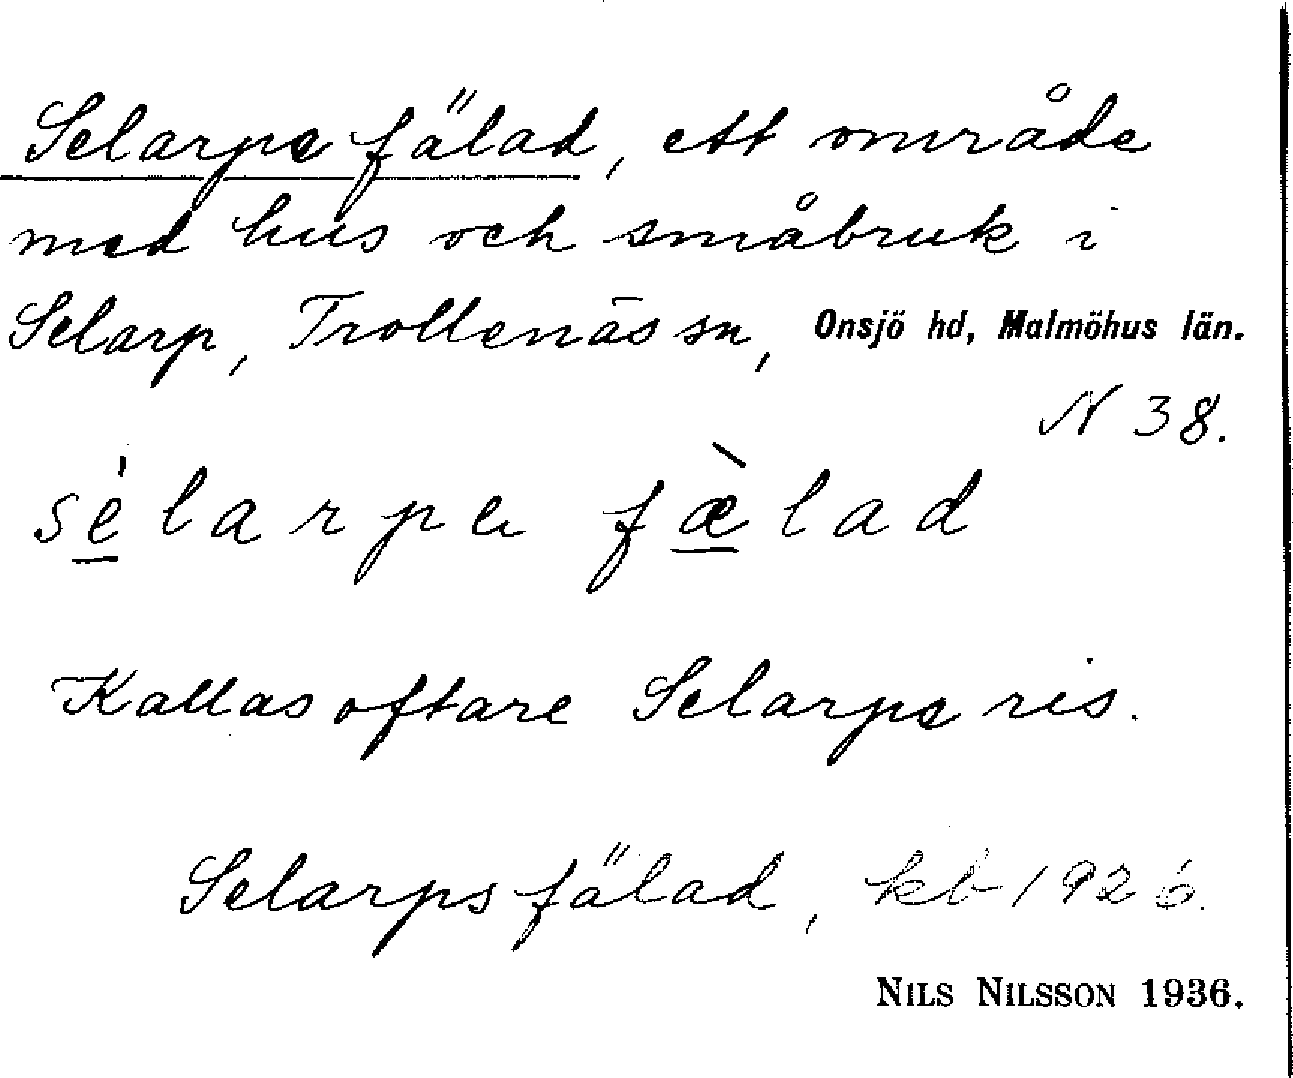 Selarpe fälad, ett område
med hus och småbruk i
Selarp, Trollenäs sn, Onsjö hd, Malmöhus län.
N 38.
sélarpə fæ̀lad
Kallas oftare Selarpe ris.
Selarps fälad, kb 1926.
NILS NILSSON 1936.